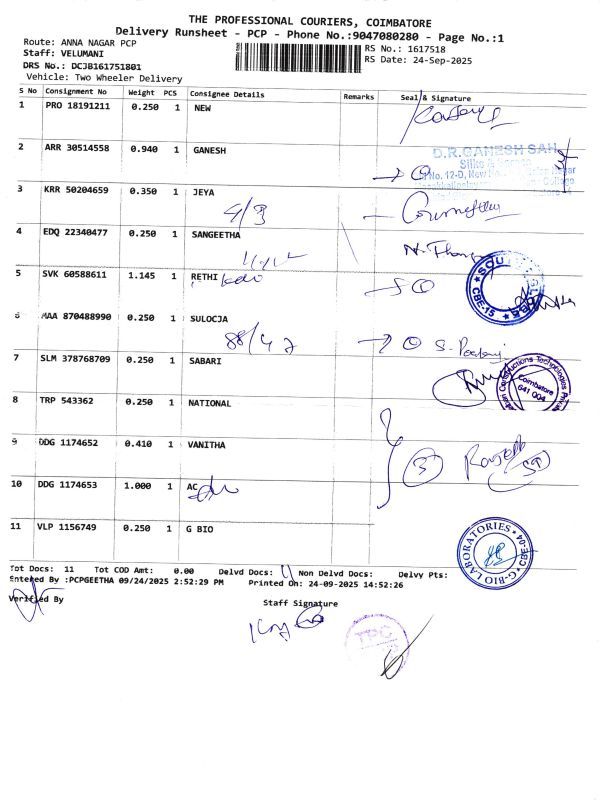 THE PROFESSIONAL COURIERS, COIMBATORE
Delivery Runsheet - PCP - Phone No.:9047080280 - Page No.:1
Route: ANNA NAGAR PCP
RS No.: 1617518
Staff: VELUMANI
RS Date: 24-Sep-2025
DRS No.: DCJB161751801
Vehicle: Two Wheeler Delivery
S No Consignment No Weight PCS Consignee Details Remarks Seal & Signature
1 PRO 18191211 0.250 1 NEW
2 ARR 30514558 0.940 1 GANESH
D.R.GANESH SAH
Silks &
No. 12-D, New No.
3 KRR 50204659 0.350 1 JEYA
4/3
4 EDQ 22340477 0.250 1 SANGEETHA
5 SVK 60588611 1.145 1 RETHI
CBE-15
6 MAA 870488990 0.250 1 SULOCJA
88/47
7 SLM 378768709 0.250 1 SABARI
Coimbatore
641 004
8 TRP 543362 0.250 1 NATIONAL
9 DDG 1174652 0.410 1 VANITHA
3
10 DDG 1174653 1.000 1 AC
11 VLP 1156749 0.250 1 G BIO
G-BIO LABORATORIES
CBE-04
Tot Docs: 11 Tot COD Amt: 0.00 Delvd Docs: 11 Non Delvd Docs: Delvy Pts:
Entered By :PCPGEETHA 09/24/2025 2:52:29 PM Printed On: 24-09-2025 14:52:26
Verified By
Staff Signature
TPC